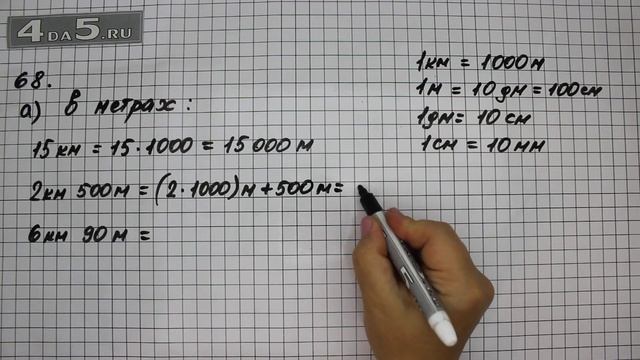 4DA5.RU
68.
а) в метрах:
15 км = 15 · 1000 = 15 000 м
2 км 500 м = (2 · 1000) м + 500 м =
6 км 90 м =
1 км = 1000 м
1 м = 10 дм = 100 см
1 дм = 10 см
1 см = 10 мм